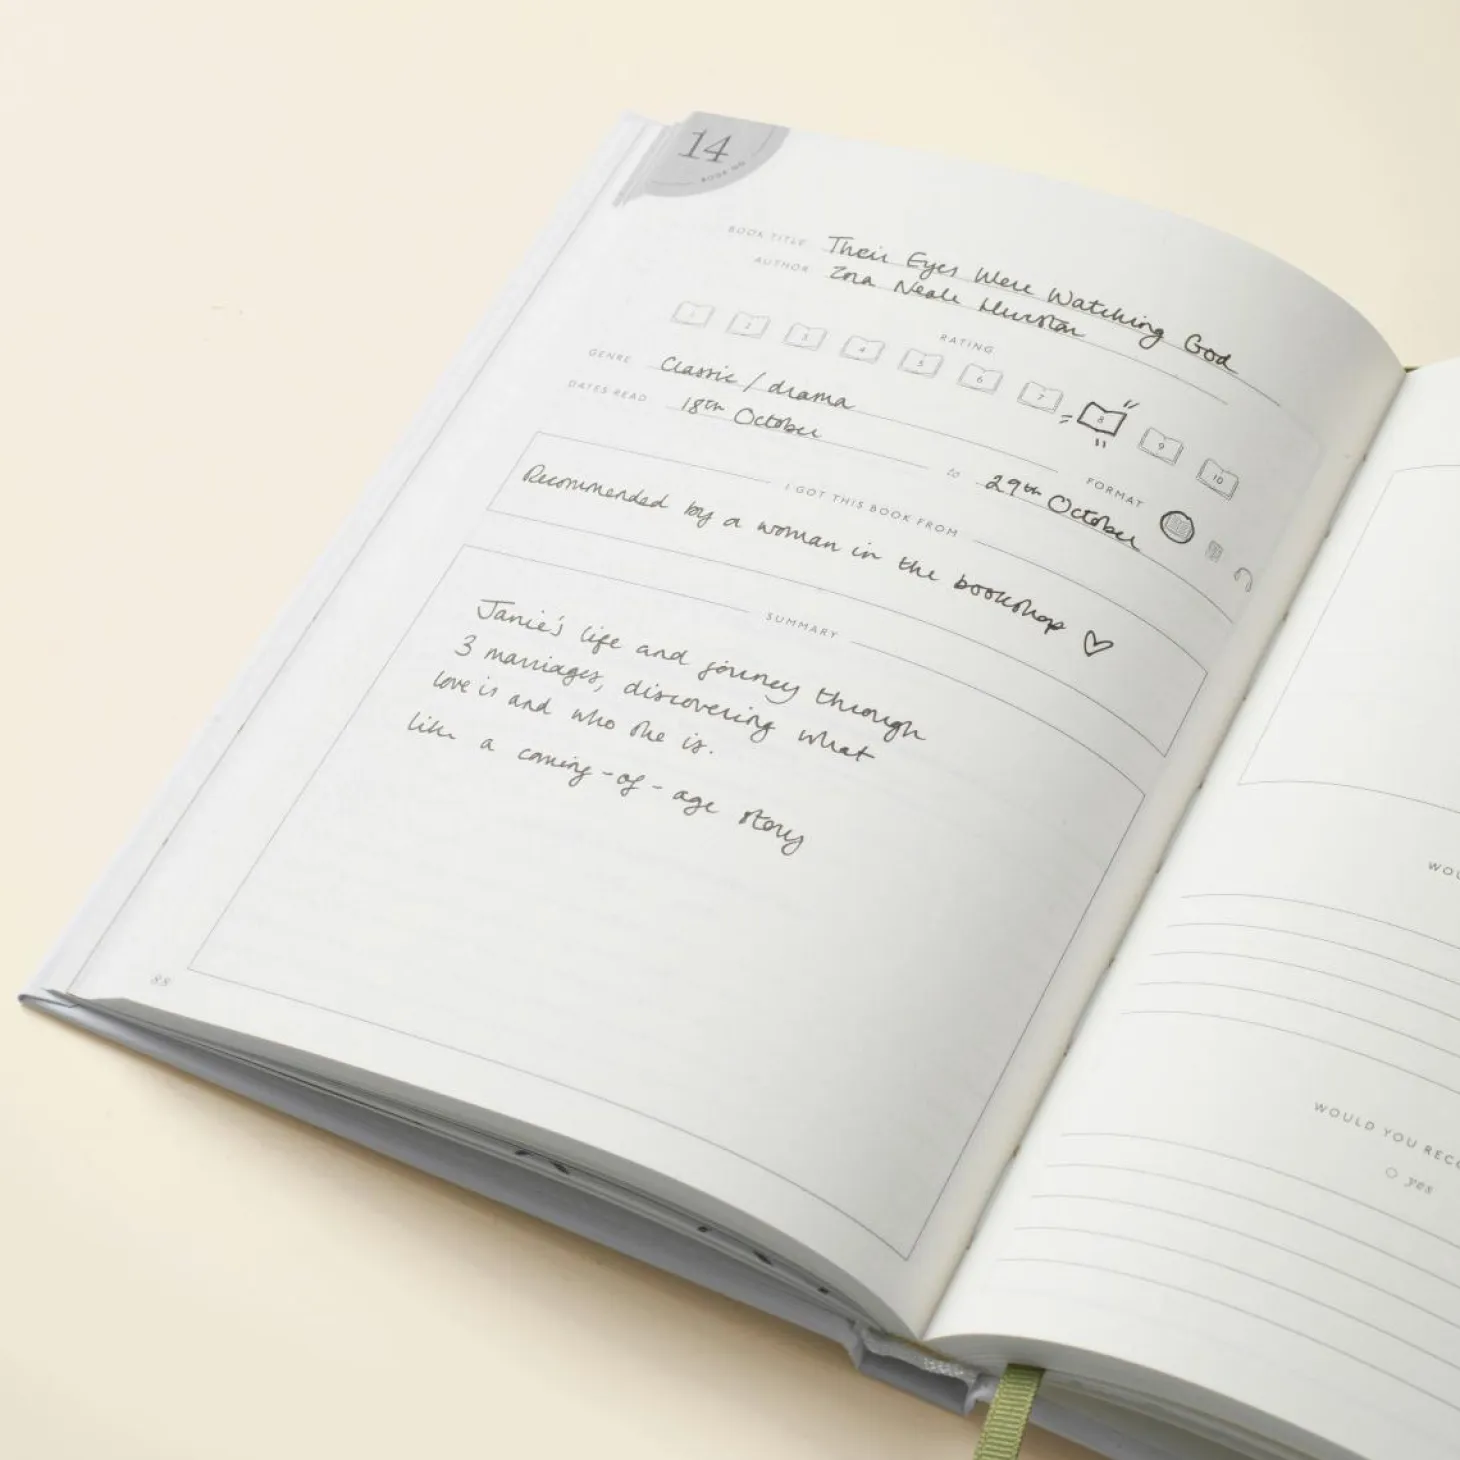 14
BOOK NO.
BOOK TITLE Their Eyes Were Watching God
AUTHOR Zora Neale Hurston
RATING
1 2 3 4 5 6 7 8 9 10
GENRE Classic / drama
FORMAT
DATES READ 18th October to 29th October
I GOT THIS BOOK FROM
Recommended by a woman in the bookshop ♡
SUMMARY
Janie's life and journey through
3 marriages, discovering what
love is and who she is.
like a coming-of-age story
88
WOU
WOULD YOU RECO
yes